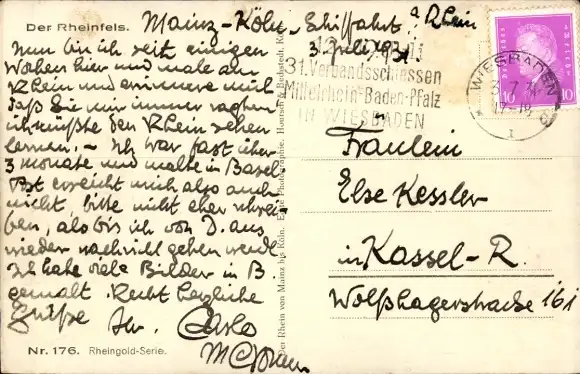 Der Rheinfels.
Mainz-Köln-Schiffahrt a Rhein
3. Juli 1931.
Nun bin ich seit einigen
Wochen hier und male am
Rhein und erinnere mich
daß Sie mir immer sagten
ich müßte den Rhein sehen
lernen. – Ich war fast über
3 Monate und malte in Basel
Post erreicht mich also auch
nicht, bitte nicht eher schrei-
ben, als bis ich von D. aus
wieder nachricht geben werde
Ich habe viele Bilder in B.
gemalt. Recht herzliche
Grüße Ihr. Carlo
Nr. 176. Rheingold-Serie.
Der Rhein von Mainz bis Köln. Echte Photographie.
31. Verbandsschiessen
Mittelrhein-Baden-Pfalz
IN WIESBADEN
WIESBADEN
17-18
10 10
Fräulein
Else Kessler
in Kassel-R.
Wolfshagerstrasse 161